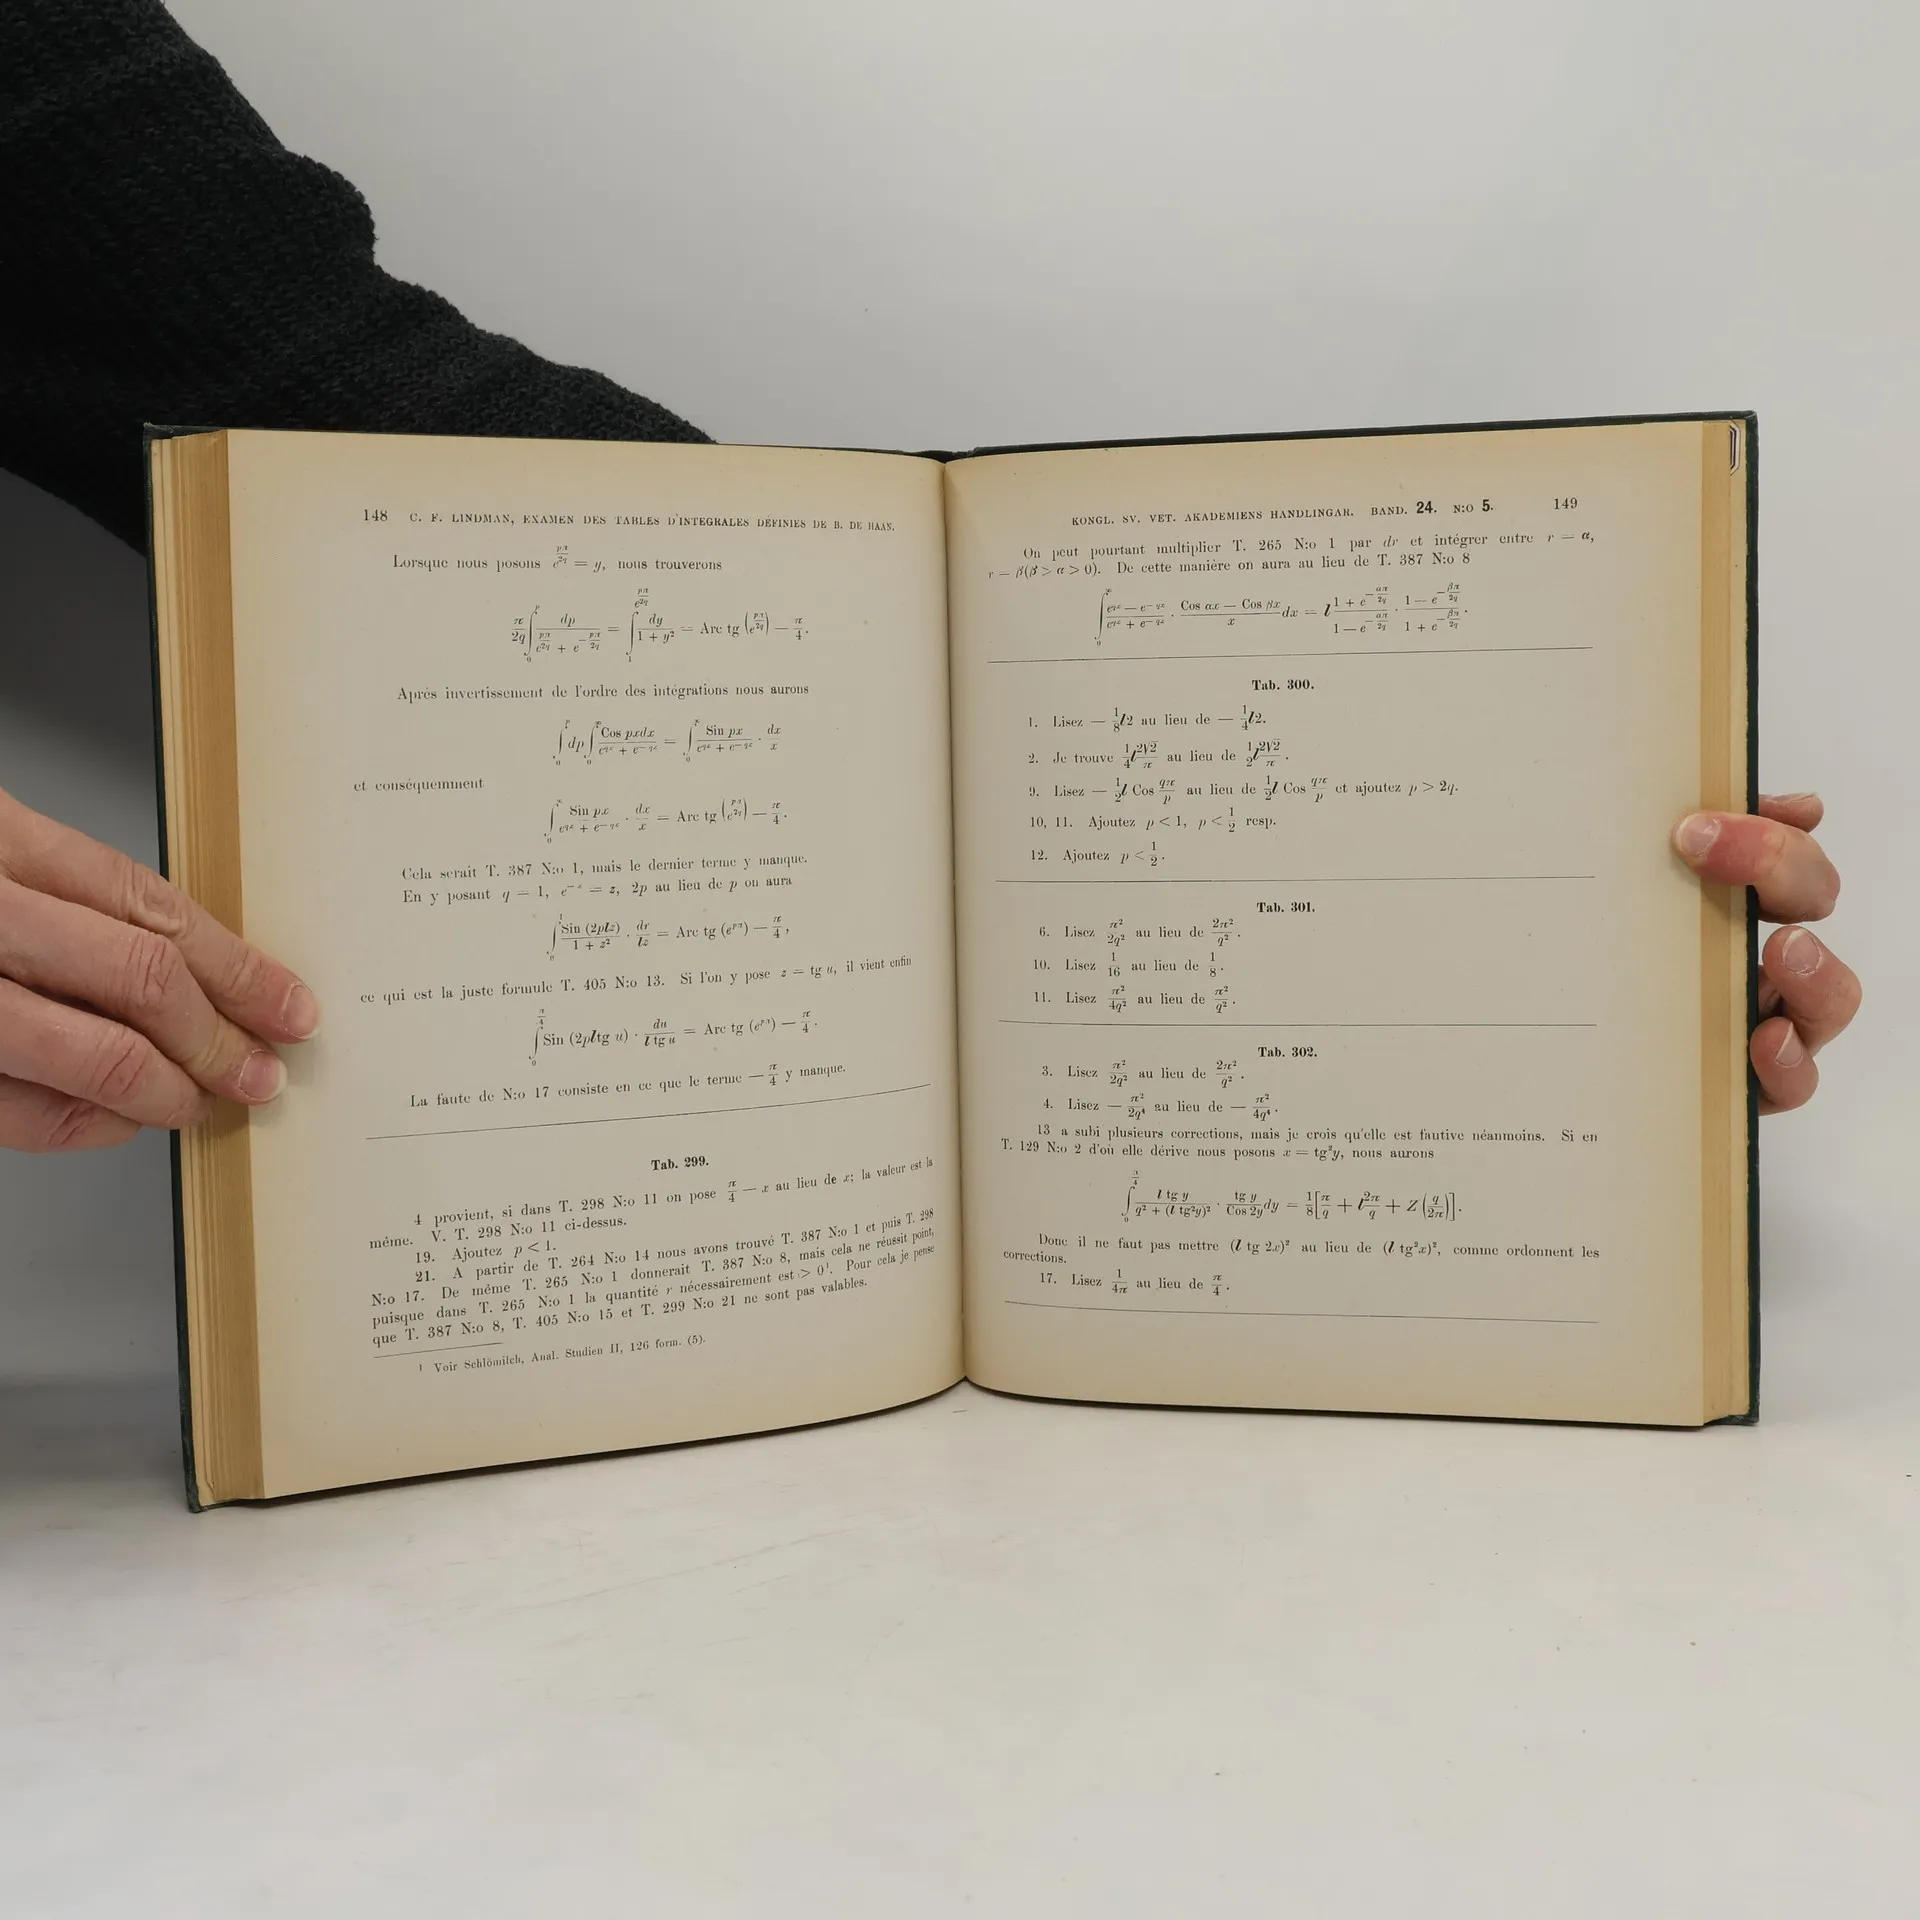 148 C. F. LINDMAN, EXAMEN DES TABLES D'INTEGRALES DÉFINIES DE B. DE HAAN.
Lorsque nous posons e^{pπ/2q} = y, nous trouverons
π/2q ∫_0^p dp/(e^{pπ/2q} + e^{-pπ/2q}) = ∫_1^{e^{pπ/2q}} dy/(1 + y²) = Arc tg (e^{pπ/2q}) — π/4.
Après invertissement de l'ordre des intégrations nous aurons
∫_0^p dp ∫_0^∞ Cos pxdx/(e^{qx} + e^{-qx}) = ∫_0^∞ Sin px/(e^{qx} + e^{-qx}) · dx/x
et conséquemment
∫_0^∞ Sin px/(e^{qx} + e^{-qx}) · dx/x = Arc tg (e^{pπ/2q}) — π/4.
Cela serait T. 387 N:o 1, mais le dernier terme y manque.
En y posant q = 1, e^{-x} = z, 2p au lieu de p on aura
∫_0^1 Sin (2plz)/(1 + z²) · dz/lz = Arc tg (e^{pπ}) — π/4,
ce qui est la juste formule T. 405 N:o 13. Si l'on y pose z = tg u, il vient enfin
∫_0^{π/4} Sin (2pltg u) · du/(l tg u) = Arc tg (e^{pπ}) — π/4.
La faute de N:o 17 consiste en ce que le terme — π/4 y manque.
Tab. 299.
4 provient, si dans T. 298 N:o 11 on pose π/4 — x au lieu de x; la valeur est la
même. V. T. 298 N:o 11 ci-dessus.
19. Ajoutez p < 1.
21. A partir de T. 264 N:o 14 nous avons trouvé T. 387 N:o 1 et puis T. 298
N:o 17. De même T. 265 N:o 1 donnerait T. 387 N:o 8, mais cela ne réussit point,
puisque dans T. 265 N:o 1 la quantité r nécessairement est > 0¹. Pour cela je pense
que T. 387 N:o 8, T. 405 N:o 15 et T. 299 N:o 21 ne sont pas valables.
¹ Voir Schlömilch, Anal. Studien II, 126 form. (5).
KONGL. SV. VET. AKADEMIENS HANDLINGAR. BAND. 24. N:O 5. 149
On peut pourtant multiplier T. 265 N:o 1 par dr et intégrer entre r = α,
r = β(β > α > 0). De cette manière on aura au lieu de T. 387 N:o 8
∫_0^∞ (e^{qx} — e^{-qx})/(e^{qx} + e^{-qx}) · (Cos αx — Cos βx)/x dx = l (1 + e^{-απ/2q})/(1 — e^{-απ/2q}) · (1 — e^{-βπ/2q})/(1 + e^{-βπ/2q}).
Tab. 300.
1. Lisez — 1/8 l2 au lieu de — 1/4 l2.
2. Je trouve 1/4 l 2√2/π au lieu de 1/2 l 2√2/π.
9. Lisez — 1/2 l Cos qπ/p au lieu de 1/2 l Cos qπ/p et ajoutez p > 2q.
10, 11. Ajoutez p < 1, p < 1/2 resp.
12. Ajoutez p < 1/2.
Tab. 301.
6. Lisez π²/2q² au lieu de 2π²/q².
10. Lisez 1/16 au lieu de 1/8.
11. Lisez π²/4q² au lieu de π²/q².
Tab. 302.
3. Lisez π²/2q² au lieu de 2π²/q².
4. Lisez — π²/2q⁴ au lieu de — π²/4q⁴.
13 a subi plusieurs corrections, mais je crois qu'elle est fautive néanmoins. Si en
T. 129 N:o 2 d'où elle dérive nous posons x = tg²y, nous aurons
∫_0^{π/4} l tg y/(q² + (l tg²y)²) · tg y/Cos 2y dy = 1/8 [π/q + l 2π/q + Z (q/2π)].
Donc il ne faut pas mettre (l tg 2x)² au lieu de (l tg²x)², comme ordonnent les
corrections.
17. Lisez 1/4π au lieu de π/4.